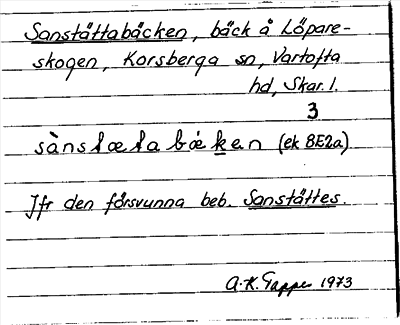 Sanstättabäcken, bäck å Löpare-
skogen, Korsberga sn, Vartofta
hd, Skar. l.
3
sànstætabæken (ek 8E2a)
Jfr den försvunna beb. Sanstättes.
A.-K. Tapper 1973